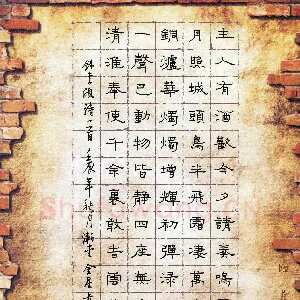 主人有酒歡今夕請奏鳴
月照城頭烏半飛霜淒萬
銅鑪華燭燭增輝初彈淥
一聲已動物皆靜四座無
清淮奉使千余裏敢告雲
詩一首 年秋月